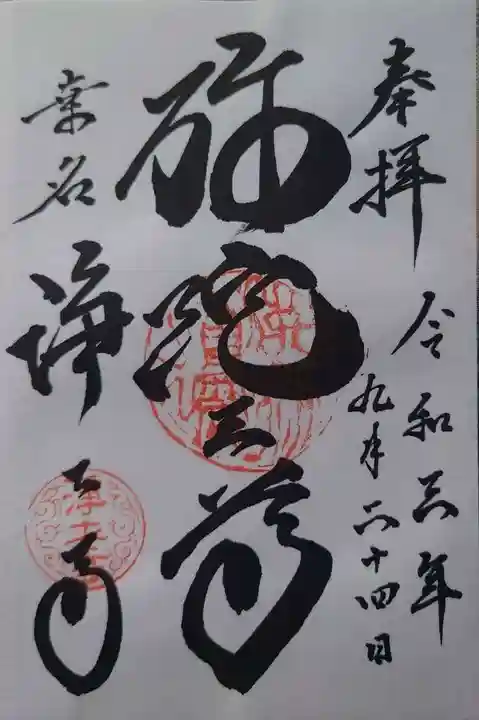 奉拝 令和三年
九月二十四日
弥陀三尊
桑名 浄土寺